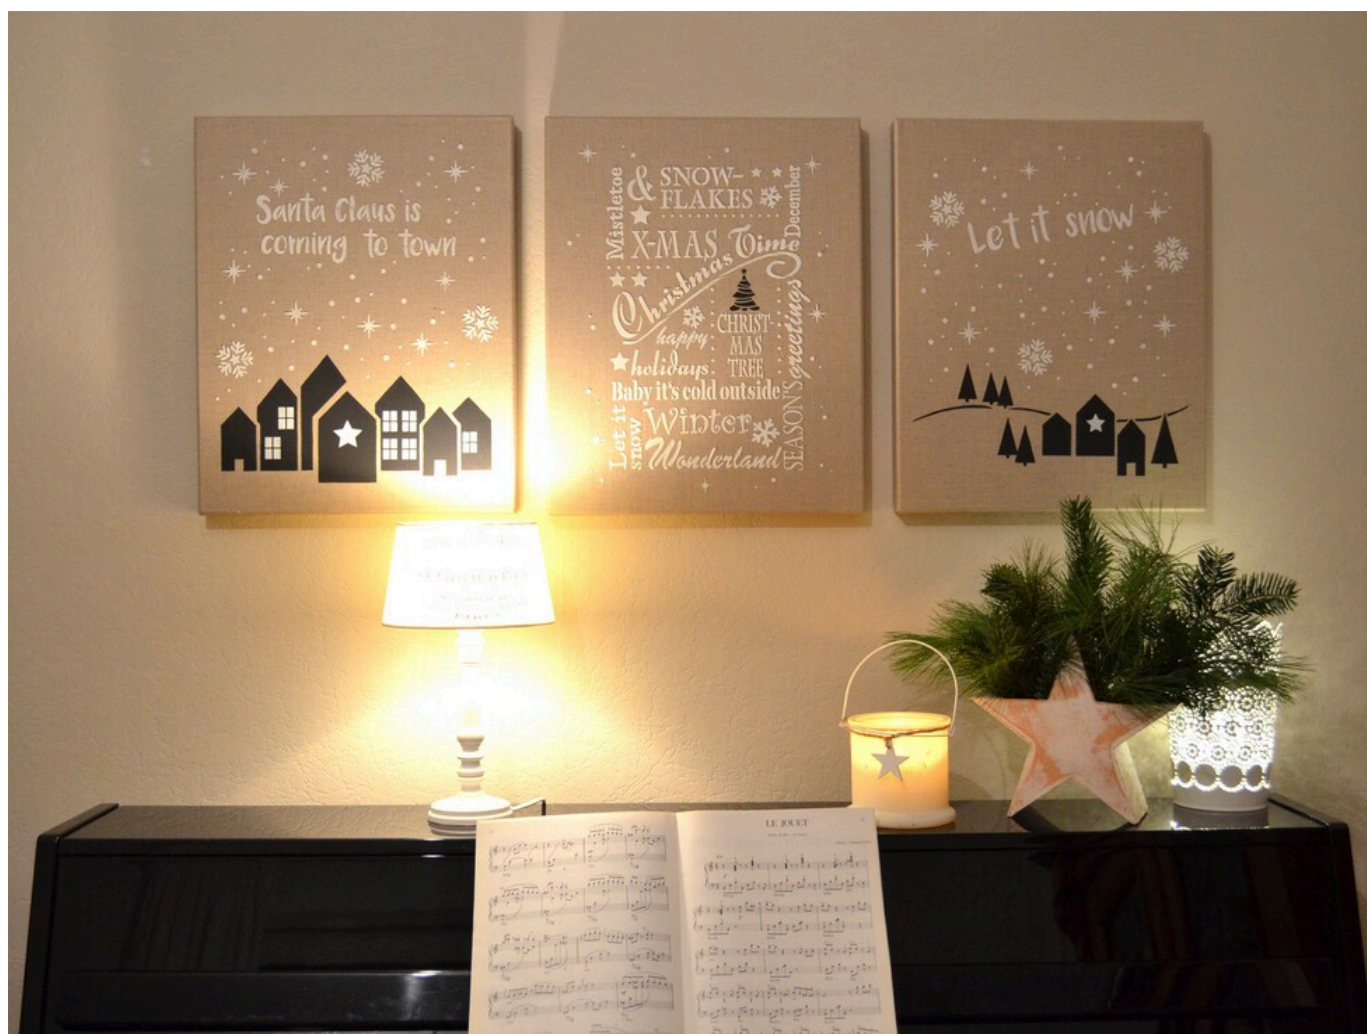 Santa Claus is
coming to town
Mistletoe
& SNOW-
FLAKES
December
X-MAS Time
Christmas
happy
holidays
CHRIST-
MAS
TREE
SEASON'S greetings
Baby it's cold outside
Let it
snow
Winter
Wonderland
Let it snow
LE JOUET